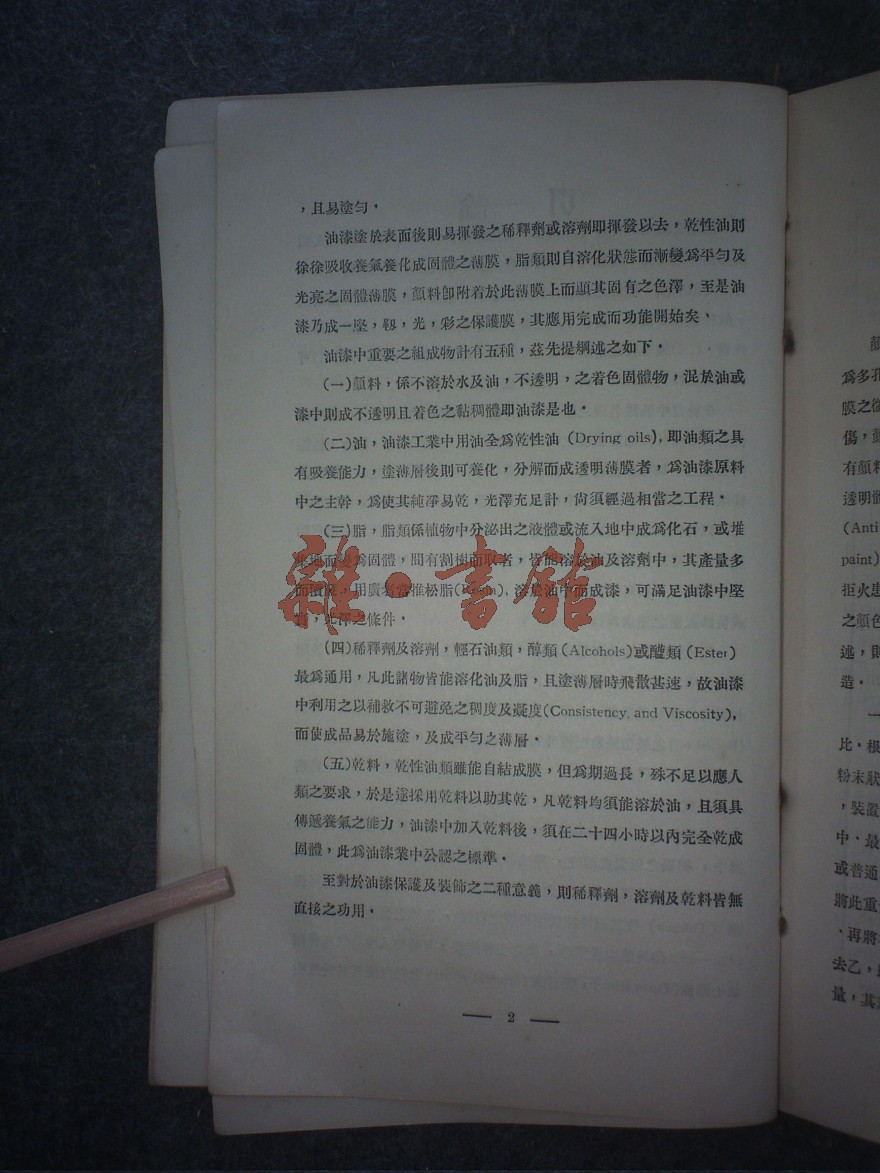 ，且易塗勻。
油漆塗於表面後則易揮發之稀釋劑或溶劑即揮發以去，乾性油則
徐徐吸收養氣養化成固體之薄膜，脂類則自溶化狀態而漸變爲平勻及
光亮之固體薄膜，顏料卽附着於此薄膜上而顯其固有之色澤，至是油
漆乃成一堅，韌，光，彩之保護膜，其應用完成而功能開始矣。
油漆中重要之組成物計有五種，茲先提綱述之如下。
(一)顏料，係不溶於水及油，不透明，之着色固體物，混於油或
漆中則成不透明且着色之黏稠體即油漆是也。
(二)油，油漆工業中用油全爲乾性油 (Drying oils)，即油類之具
有吸養能力，塗薄層後則可養化，分解而成透明薄膜者，爲油漆原料
中之主幹，爲使其純淨易乾，光澤充足計，尙須經過相當之工程。
(三)脂，脂類係植物中分泌出之液體或流入地中成爲化石，或堆
地而變爲固體，間有割樹而取者，皆能溶於油及溶劑中，其產量多
而價廉，用廣者當推松脂(Rosin)，溶於油中而成漆，可滿足油漆中堅
，光澤之條件。
(四)稀釋劑及溶劑，輕石油類，醇類(Alcohols)或醚類(Ester)
最爲通用，凡此諸物皆能溶化油及脂，且塗薄層時飛散甚速，故油漆
中利用之以補救不可避免之稠度及凝度(Consistency, and Viscosity)，
而使成品易於施塗，及成平勻之薄層。
(五)乾料，乾性油類雖能自結成膜，但爲期過長，殊不足以應人
類之要求，於是遂採用乾料以助其乾，凡乾料均須能溶於油，且須具
傳遞養氣之能力，油漆中加入乾料後，須在二十四小時以內完全乾成
固體，此爲油漆業中公認之標準。
至對於油漆保護及裝飾之二種意義，則稀釋劑，溶劑及乾料皆無
直接之功用。
— 2 —
雜·書館
顏
爲多孔
膜之後
傷，顏
有顏料
透明體
(Anti
paint)
拒火患
之顏色
述，則
造。
一
比，根
粉末狀
，裝置
中，最
或普通
將此重
，再將
去乙，
量，其